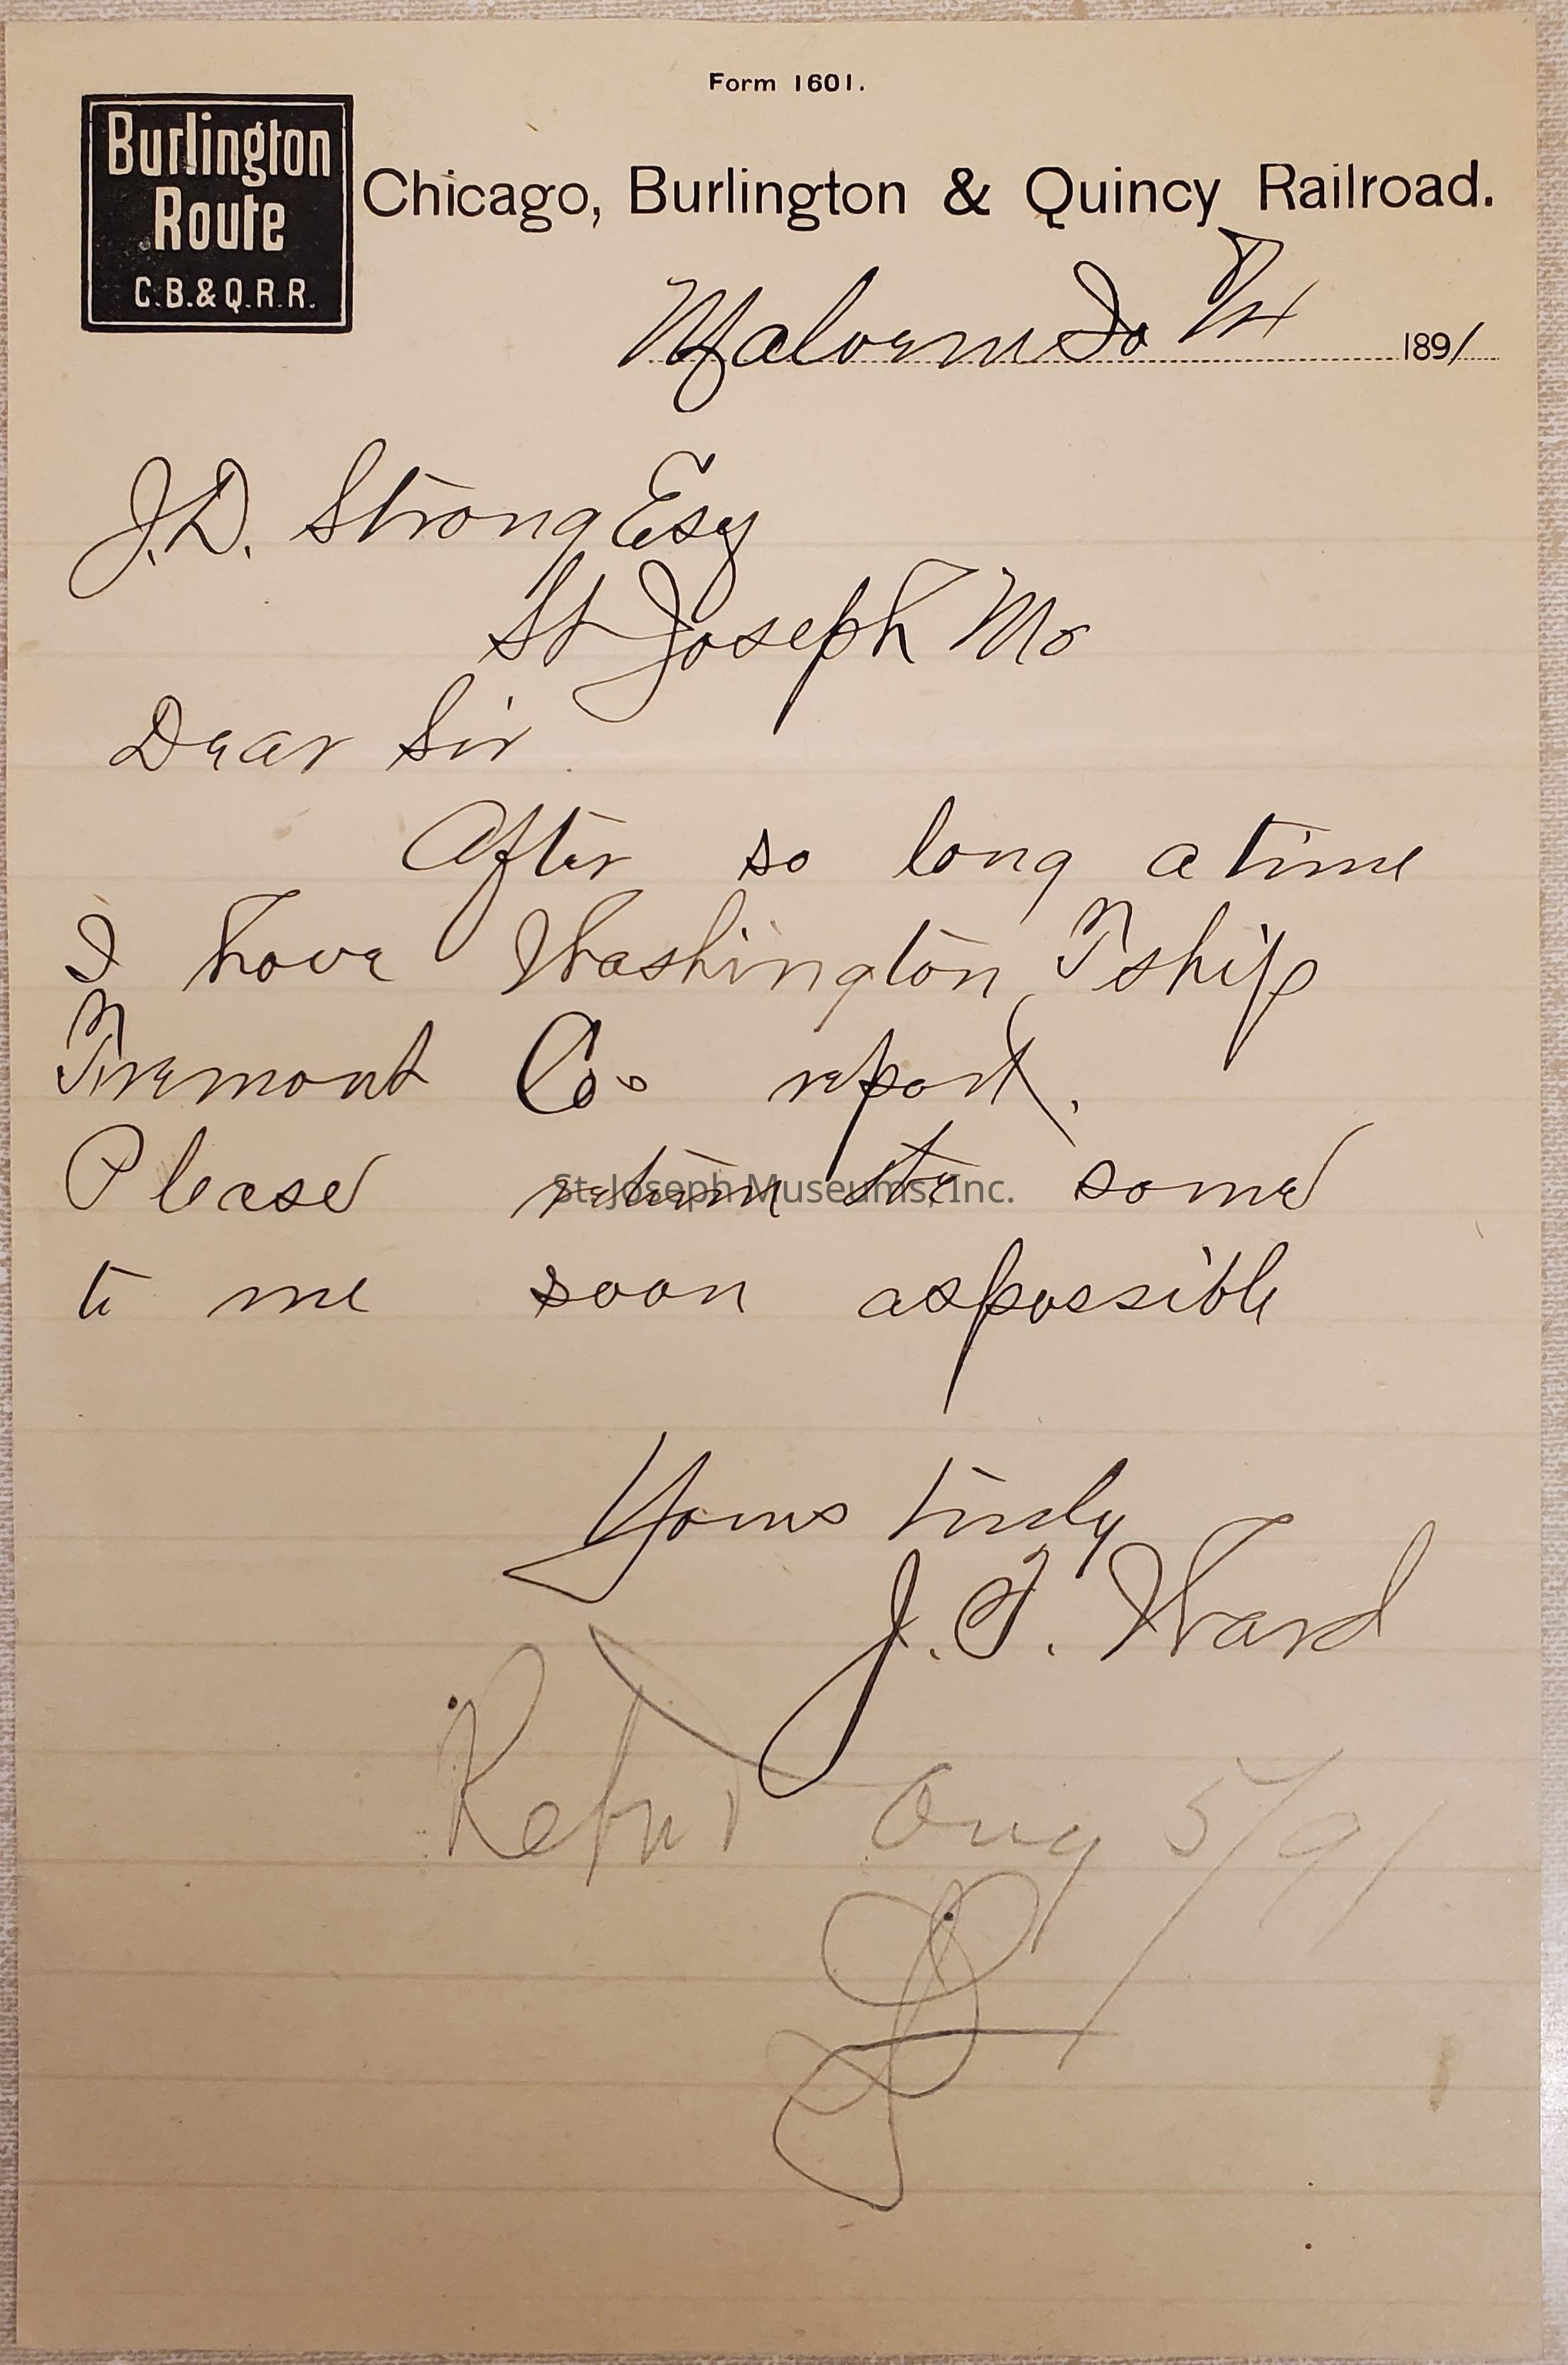 Form 1601.
Burlington
Route
C.B.&Q.R.R.
Chicago, Burlington & Quincy Railroad.
Malvern Io 1891
J.D. Strong Esq
St Joseph Mo
Dear Sir
After so long a time
I have Washington Tship
Fremont Co. report.
Please return the same
to me soon as possible
St. Joseph Museums, Inc.
Yours truly
J. F. Ward
Retnd Aug 5/91